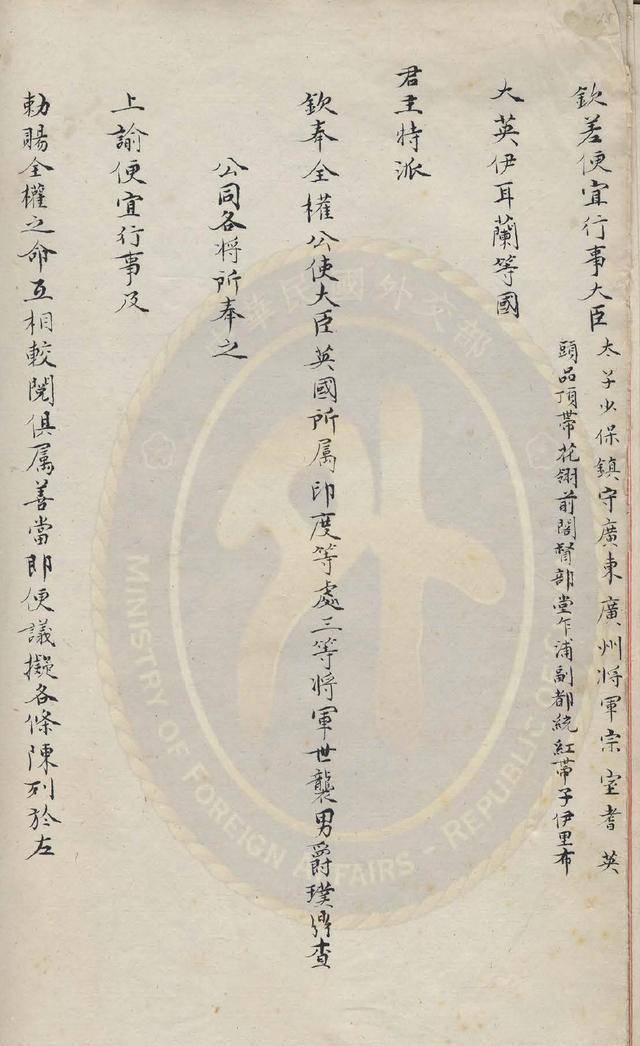 欽差便宜行事大臣
太子少保鎮守廣東廣州將軍宗室耆英
頭品頂帶花翎前閣督部堂乍浦副都統紅帶子伊里布
大英伊耳蘭等國
君主特派
欽奉全權公使大臣英國所属印度等處三等將軍世襲男爵璞鼎查
公同各將所奉之
上諭便宜行事及
勅賜全權之命互相較閱俱属善當即便議擬各條陳列於左
華民國外交部
MINISTRY OF FOREIGN AFFAIRS - REPUBLIC OF
外